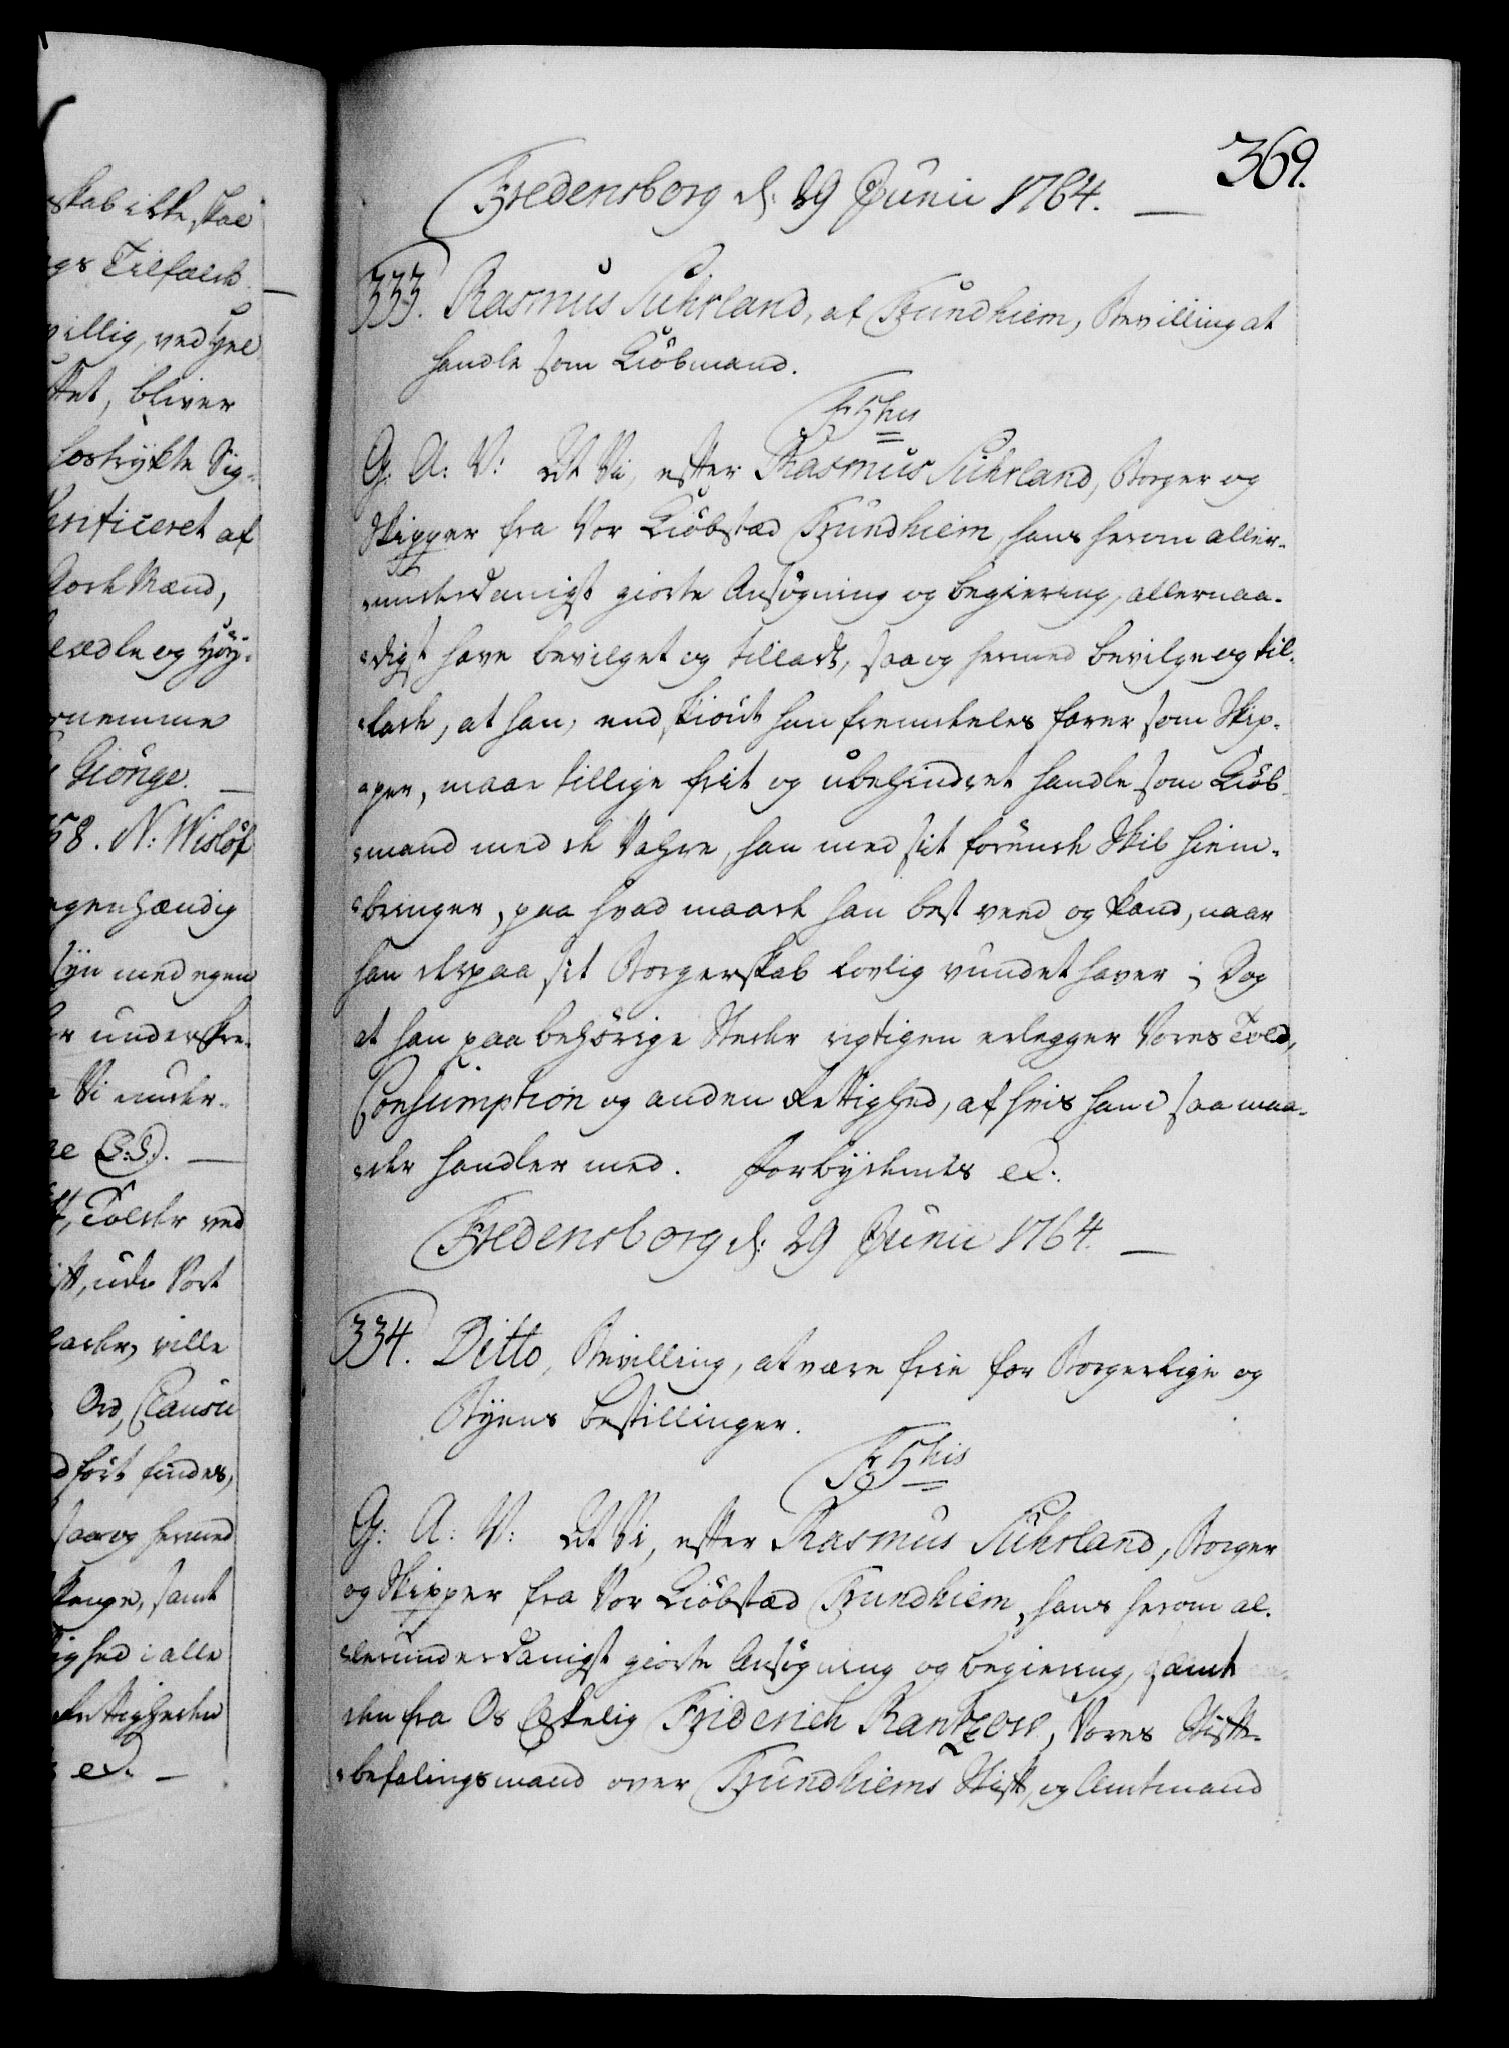 skab ikke skal
gs Tilfælde
villig, ved Hel
ttet, bliver
hostrykte Sig-
Verificeret af
Gode Mænd,
ædle og Høy-
rnemme
Giönge.
58. N: Wislöf
egenhændig
syn med egen
under skre-
Vi under-
ne (L:S.).
Tolder ved
ift, udi Vort
lader, ville
Ord, Clausu
d fört findes,
saa og hermed
Kange, samt
ighed i alle
Rettigheder
et.
369.
Fredensborg d: 29 Junii 1764.
333. Rasmus Suhrland, af Trundhiem, Bevilling at
handle som Kiöbmand.
F 5tus
G: A: V: At Vi, efter Rasmus Suhrland, Borger og
Skipper fra Vor Kiöbstad Trundhiem, hans herom aller-
underdanigst giorte Ansögning og begiering, allernaa-
digst have bevilget og tilladt, saa og hermed bevilge og til-
lade, at han, endskiönt han fremdeles farer som Skip-
per, maae tillige frit og ubehindret handle som Kiöb-
mand med de Vahre, han med sit förende Skib hiem-
bringer, paa hvad maade han best veed og kand, naar
han derpaa sit Borgerskab lovlig vundet haver; Dog
at han paa behörige Steder rigtigen erlegger Vores Told,
Consumption og anden Rettighed, af hvis hand saa maa-
der handler med. Forbydendes et.
Fredensborg d: 29 Junii 1764.
334. Ditto, Bevilling, at være frie for Borgerlige og
Byens bestillinger.
F 5tus
G: A: V: At Vi, efter Rasmus Suhrland, Borger
og Skipper fra Vor Kiöbstad Trundhiem, hans herom al-
lerunderdanigst giorte Ansögning og begiering, samt
den fra Os Elskelig Friderich Rantzow, Vores Stift-
befalingsmand over Trundhiems Stift, og Amtmand